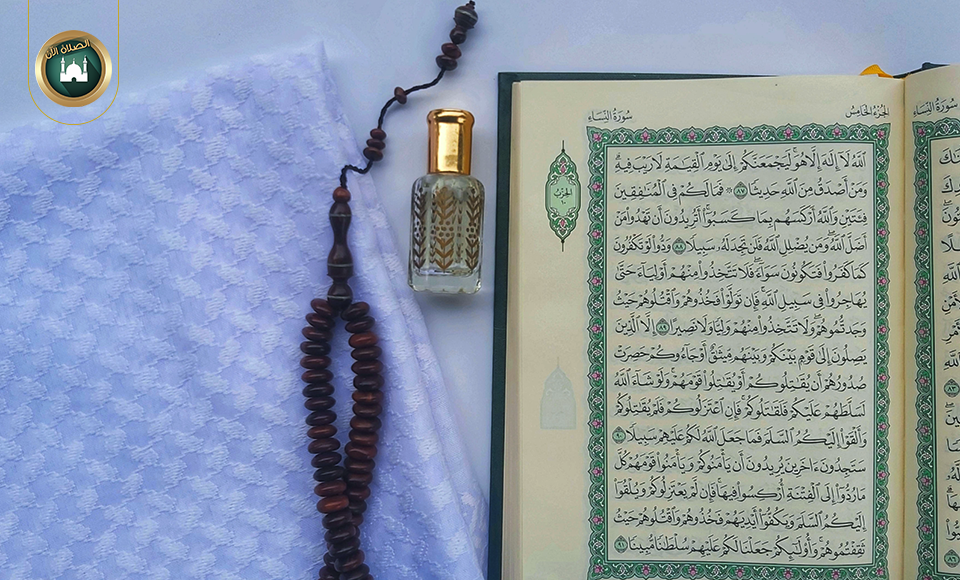 الصلاة الآن
سُورَةُ النِّسَاءِ
الجُزْءُ الخَامِسُ
سُورَةُ النِّسَاءِ
ٱللَّهُ لَآ إِلَٰهَ إِلَّا هُوَۚ لَيَجْمَعَنَّكُمْ إِلَىٰ يَوْمِ ٱلْقِيَٰمَةِ لَا رَيْبَ فِيهِۗ
وَمَنْ أَصْدَقُ مِنَ ٱللَّهِ حَدِيثًا ٨٧ ۞ فَمَا لَكُمْ فِى ٱلْمُنَٰفِقِينَ
فِئَتَيْنِ وَٱللَّهُ أَرْكَسَهُم بِمَا كَسَبُوٓا۟ۚ أَتُرِيدُونَ أَن تَهْدُوا۟ مَنْ
أَضَلَّ ٱللَّهُۖ وَمَن يُضْلِلِ ٱللَّهُ فَلَن تَجِدَ لَهُۥ سَبِيلًا ٨٨ وَدُّوا۟ لَوْ تَكْفُرُونَ
كَمَا كَفَرُوا۟ فَتَكُونُونَ سَوَآءًۖ فَلَا تَتَّخِذُوا۟ مِنْهُمْ أَوْلِيَآءَ حَتَّىٰ
يُهَاجِرُوا۟ فِى سَبِيلِ ٱللَّهِۚ فَإِن تَوَلَّوْا۟ فَخُذُوهُمْ وَٱقْتُلُوهُمْ حَيْثُ
وَجَدتُّمُوهُمْۖ وَلَا تَتَّخِذُوا۟ مِنْهُمْ وَلِيًّا وَلَا نَصِيرًا ٨٩ إِلَّا ٱلَّذِينَ
يَصِلُونَ إِلَىٰ قَوْمٍۭ بَيْنَكُمْ وَبَيْنَهُم مِّيثَٰقٌ أَوْ جَآءُوكُمْ حَصِرَتْ
صُدُورُهُمْ أَن يُقَٰتِلُوكُمْ أَوْ يُقَٰتِلُوا۟ قَوْمَهُمْۚ وَلَوْ شَآءَ ٱللَّهُ
لَسَلَّطَهُمْ عَلَيْكُمْ فَلَقَٰتَلُوكُمْۚ فَإِنِ ٱعْتَزَلُوكُمْ فَلَمْ يُقَٰتِلُوكُمْ
وَأَلْقَوْا۟ إِلَيْكُمُ ٱلسَّلَمَ فَمَا جَعَلَ ٱللَّهُ لَكُمْ عَلَيْهِمْ سَبِيلًا ٩٠
سَتَجِدُونَ ءَاخَرِينَ يُرِيدُونَ أَن يَأْمَنُوكُمْ وَيَأْمَنُوا۟ قَوْمَهُمْ كُلَّ
مَا رُدُّوٓا۟ إِلَى ٱلْفِتْنَةِ أُرْكِسُوا۟ فِيهَاۚ فَإِن لَّمْ يَعْتَزِلُوكُمْ وَيُلْقُوٓا۟
إِلَيْكُمُ ٱلسَّلَمَ وَيَكُفُّوٓا۟ أَيْدِيَهُمْ فَخُذُوهُمْ وَٱقْتُلُوهُمْ حَيْثُ
ثَقِفْتُمُوهُمْۚ وَأُو۟لَٰٓئِكُمْ جَعَلْنَا لَكُمْ عَلَيْهِمْ سُلْطَٰنًا مُّبِينًا ٩١